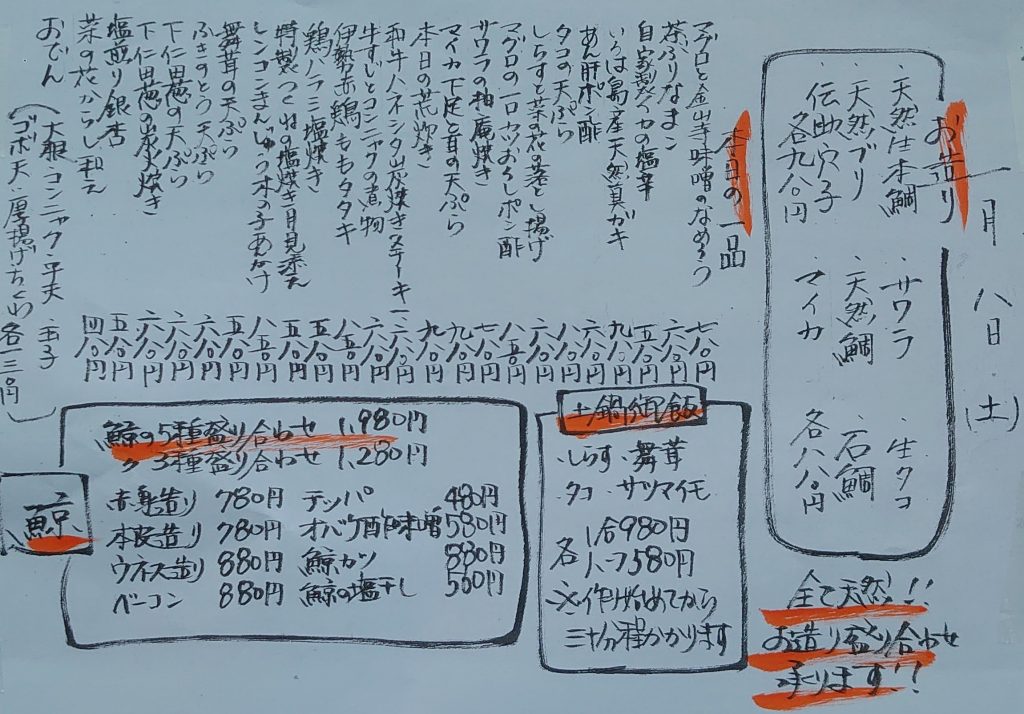 一月八日(土)
お造り
・天然生本鯛 ・サワラ ・生タコ
・天然ブリ ・天然鯛 ・石鯛
・伝助穴子 マイカ
各九八〇円 各八八〇円
本日の一品
マグロと金山寺味噌のなめろう 七八〇円
茶ぶりなまこ 六八〇円
自家製イカの塩辛 五八〇円
いろは島産天然真ガキ 九八〇円
あん肝ポン酢 八八〇円
タコの天ぷら 八八〇円
しらすと菜の花の蒸し揚げ 六八〇円
マグロの一口カツおろしポン酢 八五〇円
サワラの柚庵焼き 七八〇円
マイカ下足と茸の天ぷら 九八〇円
本日の荒炊き 九八〇円
和牛ハネシタ炭焼きステーキ 一六八〇円
牛すじとコンニャクの煮物 六八〇円
伊勢赤鶏ももタタキ 八五〇円
鶏ハラミ塩焼き 五八〇円
特製つくねの塩焼き月見添え 五八〇円
レンコンまんじゅう木の子あんかけ 八五〇円
舞茸の天ぷら 五八〇円
ふきのとう天ぷら 六八〇円
下仁田葱の天ぷら 六八〇円
下仁田葱の炭火焼き 六八〇円
塩煎り銀杏 五八〇円
菜の花からし和え 四八〇円
おでん(大根・コンニャク・平天・玉子
ゴボ天・厚揚げ・ちくわ 各一三〇円)
鯨
鯨の5種盛り合わせ 1,980円
〃 3種盛り合わせ 1,280円
赤身造り 780円 テッパ 480円
本皮造り 780円 オバケ酢味噌 580円
ウネス造り 880円 鯨カツ 880円
ベーコン 880円 鯨の塩干し 550円
土鍋御飯
・しらす ・舞茸
・タコ ・サツマイモ
各 1合980円
ハーフ580円
※作り始めてから
三十分程かかります
全て天然!!
お造り盛り合わせ
承ります!!